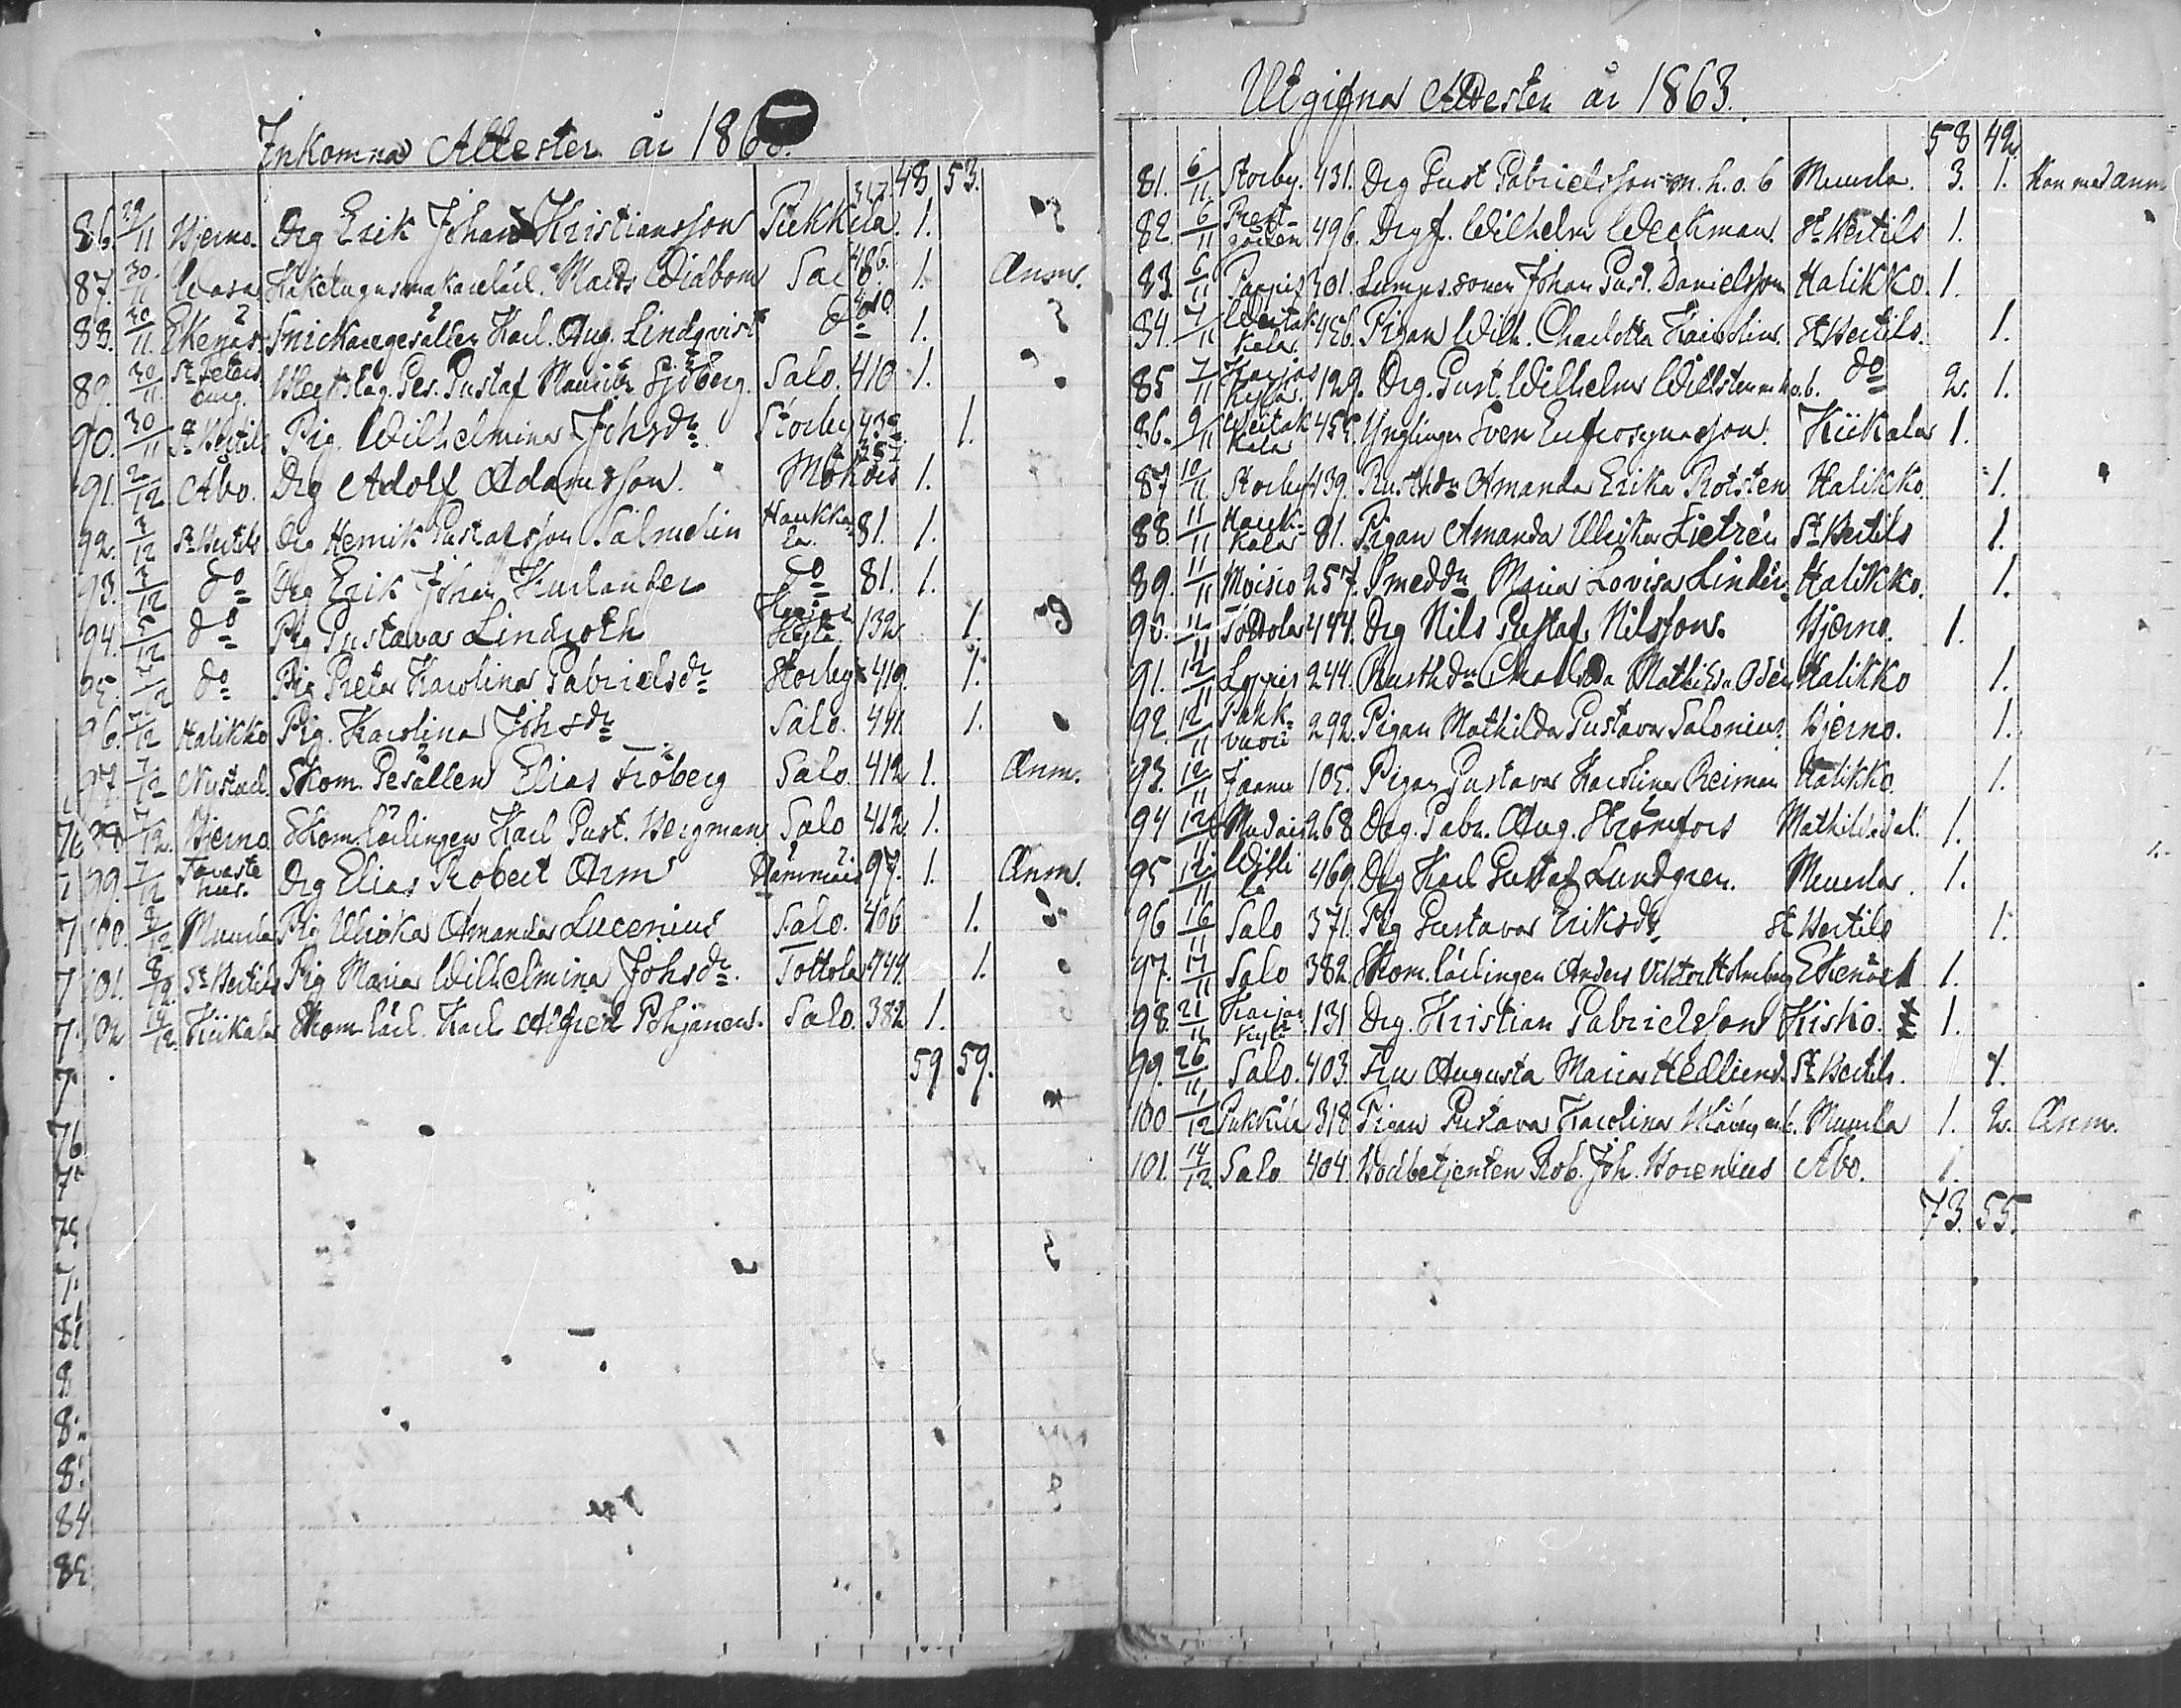 Inkomna Attester år 186
48. 53.
86. 29/11 Bjerno. Drg Erik Johan Kristiansson Pukkila. 317. 1.
87. 30/11 Wasa Kakelugnsmakarelärl. Matts Widbom Salo 486. 1. Anm.
88. 30/11. Ekenäs. Snickaregesällen Karl. Aug. Lindqvist do 410 1.
89. 30/11. St Petersburg. Ges. Gustaf Mauritz Sjöberg. Salo. 410 1.
90. 30/11 St Bertils Pig. Wilhelmina Johsdr Storby 432. 1.
91. 2/12 Abo. Drg Adolf Adamsson. 257 1.
92. 3/12 St Bertils Drg Henrik Gustafsson Salmelin Haukkala. 81. 1.
93. 3/12 do Drg Erik Johan Kurlander do 81. 1.
94. 5/12 do Pig Gustava Lindroth Karjaskylä. 132. 1.
95. 7/12 do Pig Greta Karolina Gabrielsdr Storby 419. 1.
96. 7/12 Halikko Pig. Karolina Johsdr Salo. 441. 1.
97. 7/12 Nystad. Skom. Gesällen Elias Fröberg Salo. 412 1. Anm.
98. 7/12. Bjerno Skom. lärlingen Karl Gust. Bergman Salo 412. 1.
99. 7/12 Tavastehus. Drg Elias Robert Arm 97. 1. Anm.
100. 8/12. Muurla Pig Ulrika Amanda Lucenius Salo. 406 1.
101. 8/12. St Bertils Pig Maria Wilhelmina Johsdr. Tottola 444. 1.
102 19/12. Kiikala Skom. lärl. Karl Alfred Pohjanen. Salo. 382 1.
59 59.
76
84
Utgifna Attester år 1863.
58 42
81. 6/11 Storby. 431. Drg Gust Gabrielsson m. h. o. b Muurla. 3. 1. Kon med anm.
82. 6/11 Prestgården 496. Drgf. Wilhelm Weckman. St Bertils 1.
83. 6/11 301. Lumps. sonen Johan Gust. Danielsson Halikko. 1.
84. 7/11 456. Pigan Wilh. Charlotta St Bertils. 1.
85 7/11 Karjaskylä. 129. Drg. Gust. Wilhelm Willsten m h. o. b. do 2. 1.
86. 9/11 455. Ynglingen Sven Eufrosynasson. Kiikala 1.
87 10/11. Storby 439. Rusthdr Amanda Erika Rotsten Halikko 1.
88. 11/11 Haukkala 81. Pigan Amanda Ulrika St Bertils 1.
89. 11/11 Moisio 257. Smeddr Maria Lovisa Linden. Halikko. 1.
90. 11/11 Tottola 444. Drg Nils Gustaf Nilsson. Bjerno. 1.
91. 12/11 244. Rusthdr Charlotta Mathilda Odén Halikko 1.
92. 12/11 292. Pigan Mathilda Gustava Salonius. Bjerno. 1.
93. 12/11 105. Pigan Gustava Karolina Reiman Halikko. 1.
94 12/11 268 Drg. Gabr. Aug. Strömfors Mathildedal. 1.
95 12/11 469. Drg Karl Gustaf Lundgren. Muurla. 1.
96 16/11 Salo 371. Pig Gustava Eriksdr. St Bertils 1.
97. 17/11 Salo 382. Skom. lärlingen Anders Viktor Holmberg Ekenäs 1.
98. 21/11 Karjaskylä 131 Drg. Kristian Gabrielsson Kisko. 1.
99. 26/11 Salo. 403. Fru Augusta Maria Hedlund. St Bertils. 1.
100 1/12 Pukkila 318 Pigan Gustava Karolina m. b. Muurla 1. 2. Anm.
101. 14/12. Salo 404. Bodbetjenten Rob. Joh. Borenius Abo. 1.
73. 55.